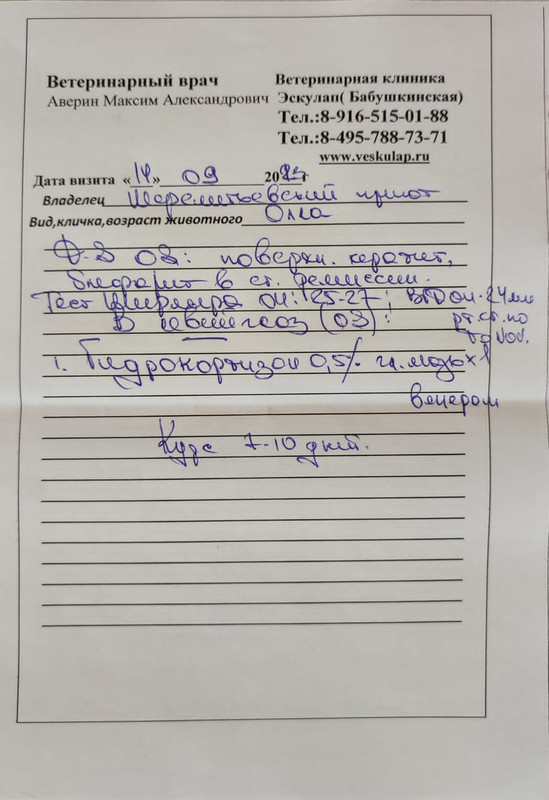 Ветеринарный врач
Аверин Максим Александрович
Ветеринарная клиника
Эскулап( Бабушкинская)
Тел.:8-916-515-01-88
Тел.:8-495-788-73-71
www.veskulap.ru
Дата визита «14» 09 20 г
Владелец Шереметьевский приют
Вид,кличка,возраст животного Олла
D-S OS: поверхн. кератит,
блефарит в ст. ремиссии.
Тест Ширмера OU: 25-27; ВГД OU-24 мм
рт.ст. по
В левый глаз (OS):
1. Гидрокортизон 0,5% гл. мазь х 1
вечером
Курс 7-10 дней.